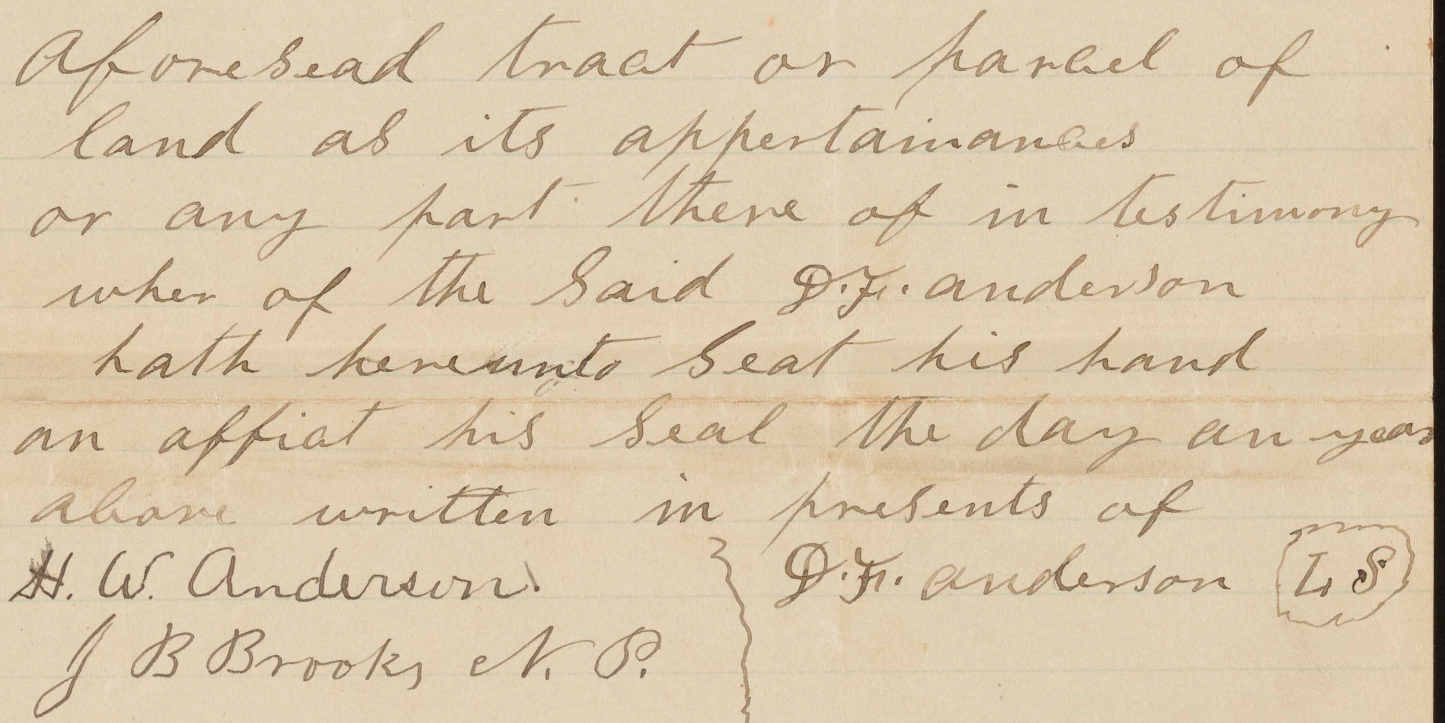 Aforesead tract or parcel of
land as its appertainances
or any part there of in testimony
wher of the Said D.F. anderson
hath hereunto Seat his hand
an affiat his Seal the day an year
above written in presents of
H. W. Anderson. D.F. anderson L S
J B Brooks N. P.